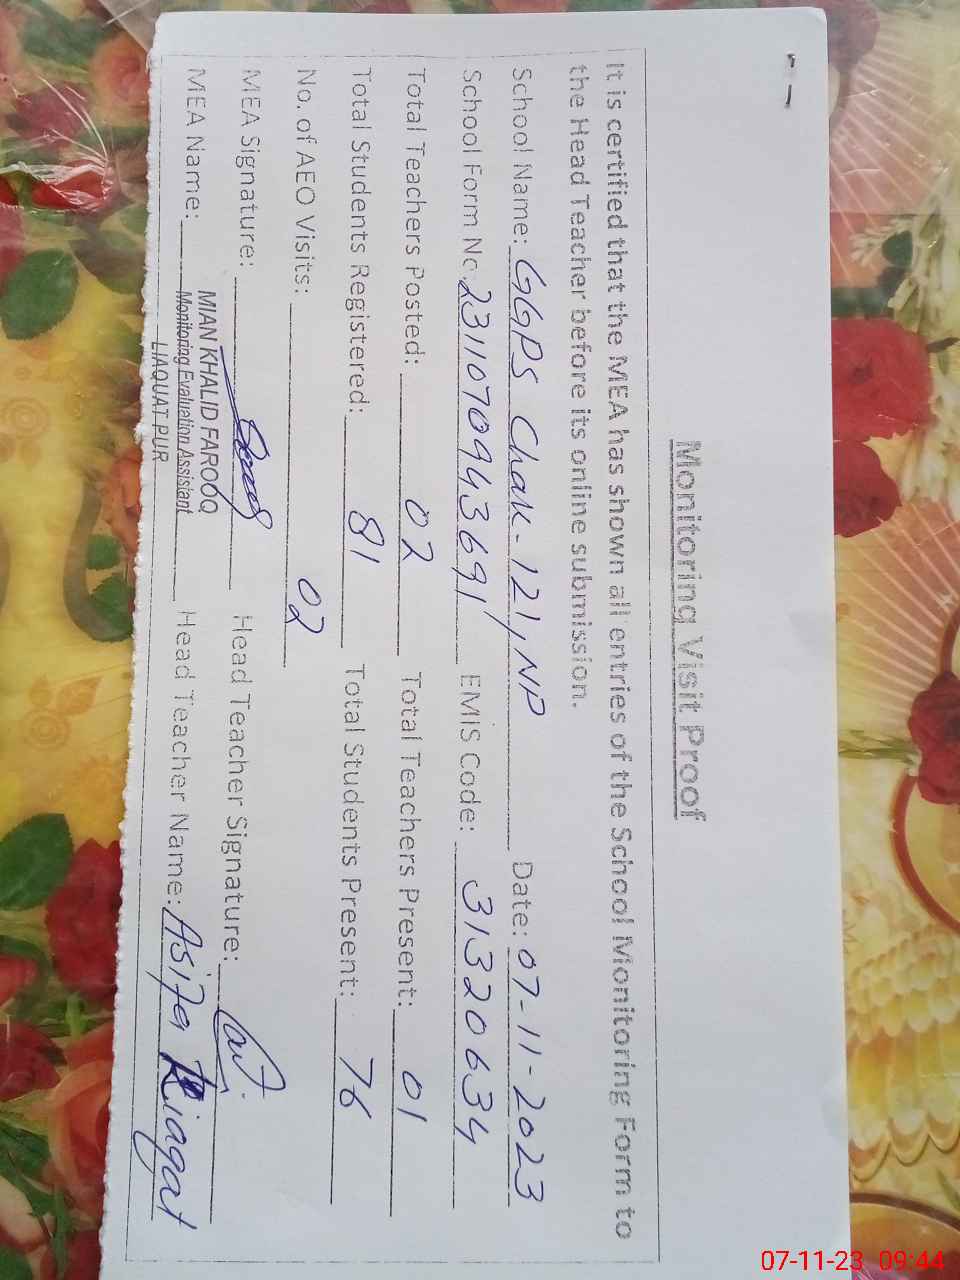 Monitoring Visit Proof
It is certified that the MEA has shown all entries of the School Monitoring Form to
the Head Teacher before its online submission.
School Name: GGPS Chak-121, NP Date: 07-11-2023
School Form No. 23110709443691 EMIS Code: 31320634
Total Teachers Posted: 02 Total Teachers Present: 01
Total Students Registered: 81 Total Students Present: 76
No. of AEO Visits: 02
MEA Signature: Head Teacher Signature:
MEA Name: MIAN KHALID FAROOQ Head Teacher Name: Asifa Liaqat
Monitoring Evaluation Assistant
LIAQUAT PUR
07-11-23 09:44